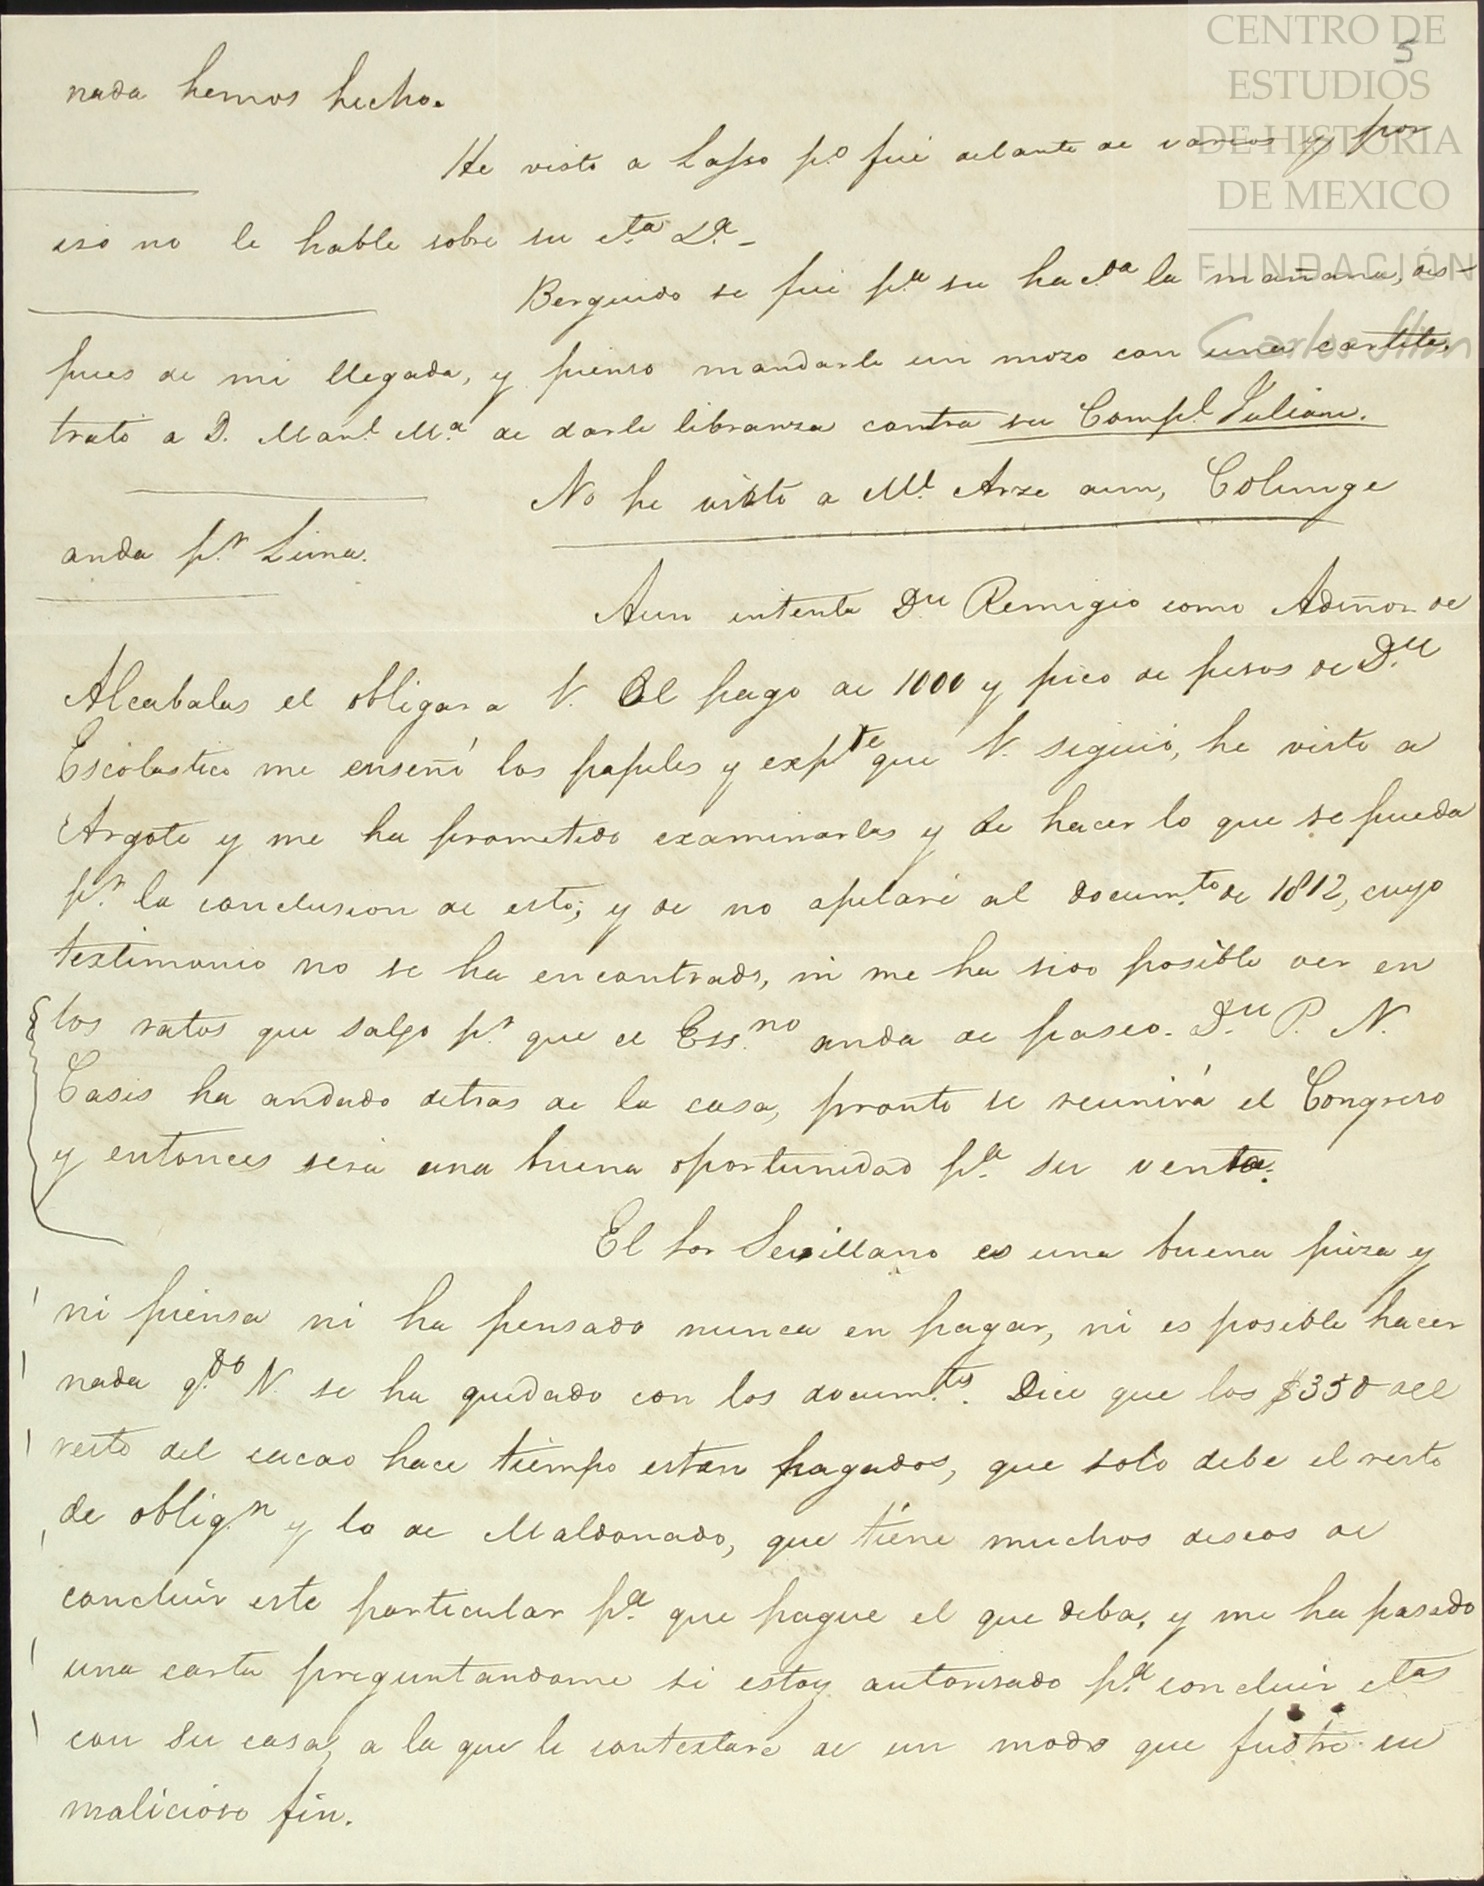 CENTRO DE
ESTUDIOS
DE HISTORIA
DE MEXICO
FUNDACIÓN
Carlos Slim
5
nada hemos hecho.
He visto a Lasso p.o fué delante de varios y por
eso no le hablé sobre su c.ta L.a
Berguido se fué p.a su hac.da la mañana, des-
pues de mi llegada, y pienso mandarle un mozo con una cartita,
trató a D. Man.l M.a de darle libranza contra su Comp.l Julian.
No he visto a M.l Arze aun, Colunge
anda p.r Lima.
Aun intenta D.n Remigio como Admor de
Alcabalas el obligar a V. al pago de 1000 y pico de pesos de D.n
Escolastico me enseñó los papeles y exp.te que V. siguió, he visto a
Argote y me ha prometido examinarlas y de hacer lo que se pueda
p.r la conclusion de esto; y de no apelaré al docum.to de 1812, cuyo
testimonio no se ha encontrado, ni me ha sido posible ver en
los ratos que salgo p.r que el Ess.no anda de paseo. D.n P. N.
Casis ha andado detras de la casa, pronto se reunirá el Congreso
y entonces será una buena oportunidad p.a su venta.
El Sor Sevillano es una buena pieza y
ni piensa ni ha pensado nunca en pagar, ni es posible hacer
nada q.do V. se ha quedado con los docum.tos. Dice que los $350 del
resto del cacao hace tiempo estan pagados, que solo debe el resto
de oblig.n y lo de Maldonado, que tiene muchos deseos de
concluir este particular p.a que pague el que deba, y me ha pasado
una carta preguntandome si estoy autorisado p.a concluir c.tas
con su casa, a la que le contestaré de un modo que fustre su
malicioso fin.